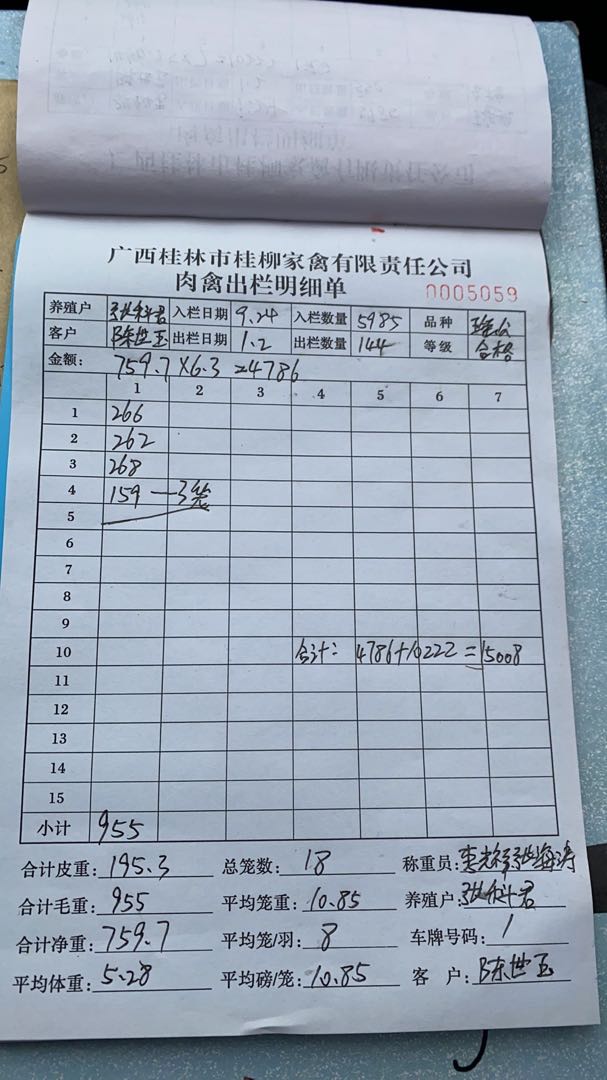 广西桂林市桂柳家禽有限责任公司
肉禽出栏明细单 0005059
养殖户 张科君 入栏日期 9.24 入栏数量 5985 品种
客户 陈世玉 出栏日期 1.2 出栏数量 144 等级 合格
金额: 759.7×6.3=4786
1 2 3 4 5 6 7
1 266
2 262
3 268
4 159—3笼
5
6
7
8
9
10 合计: 4786+10222=15008
11
12
13
14
15
小计 955
合计皮重: 195.3 总笼数: 18 称重员:
合计毛重: 955 平均笼重: 10.85 养殖户: 张科君
合计净重: 759.7 平均笼/羽: 8 车牌号码: 1
平均体重: 5.28 平均磅/笼: 10.85 客 户: 陈世玉